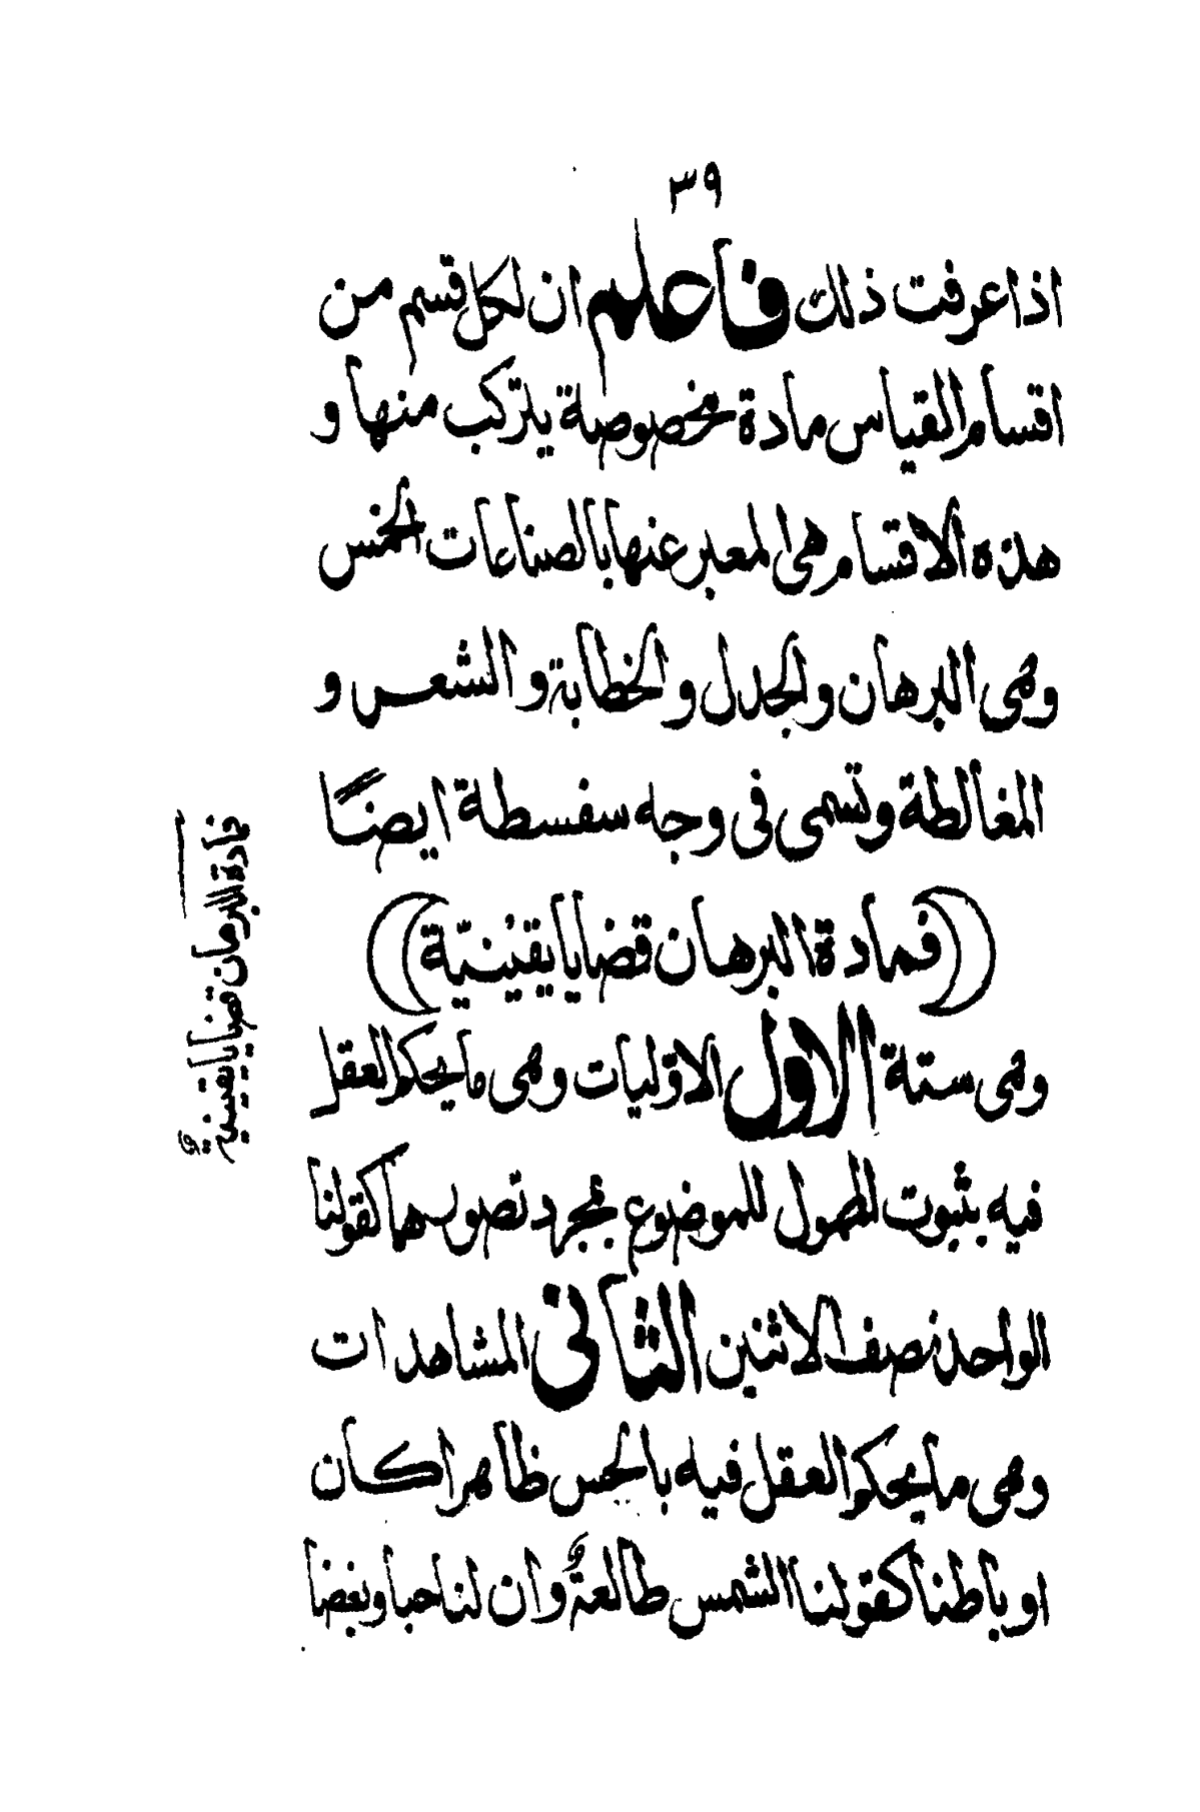 ٣٩
اذا عرفت ذلك فاعلم ان لكل قسم من
اقسام القياس مادة مخصوصة يتركب منها و
هذه الاقسام هى المعبر عنها بالصناعات الخمس
وهى البرهان والجدل والخطابة والشعر و
المغالطة وتسمى فى وجه سفسطة ايضًا
(فمادة البرهان قضايا يقينيّة)
وهى ستة الاول الاوّليات وهى ما يحكم العقل
فيه بثبوت المحمول للموضوع بمجرد تصورهما كقولنا
الواحد نصف الاثنين الثانى المشاهدات
وهى ما يحكم العقل فيه بالحس ظاهرا كان
او باطنا كقولنا الشمس طالعةٌ وان لنا حبا وبغضا
فمادة البرهان قضايا يقينيةٌ